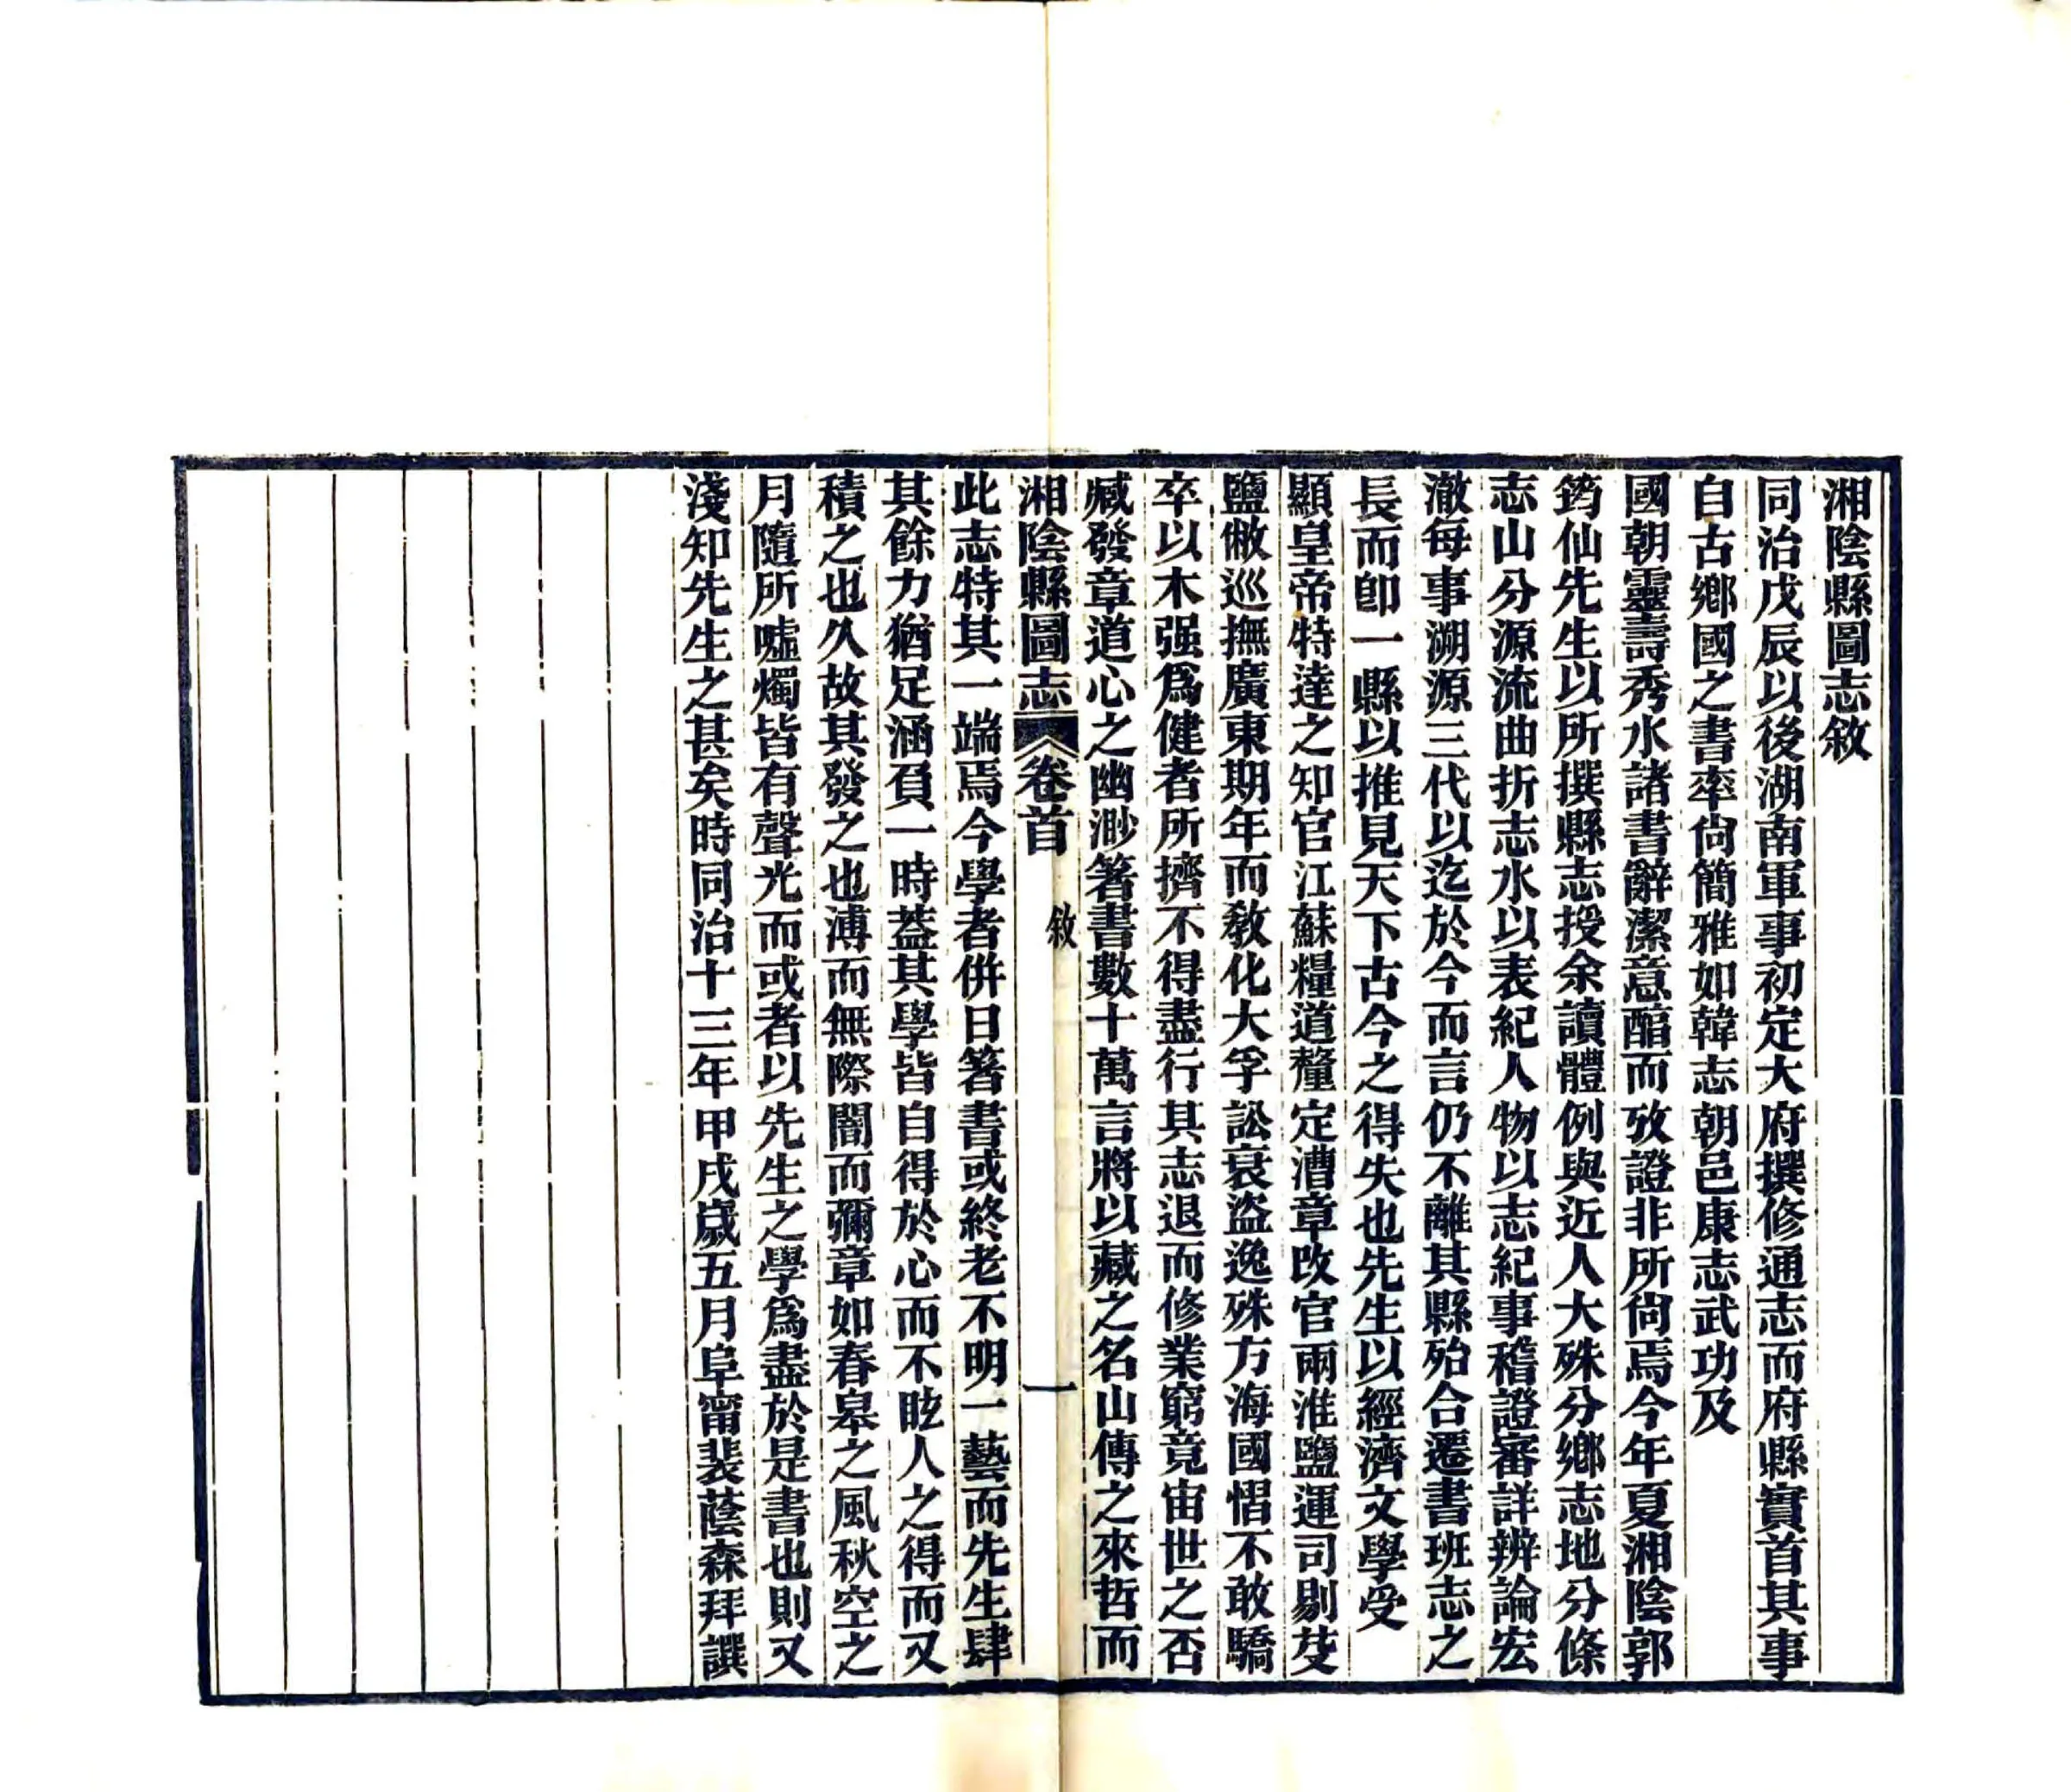 湘陰縣圖志敘
同治戊辰以後湖南軍事初定大府撰修通志而府縣實首其事
自古鄉國之書率尙簡雅如韓志朝邑康志武功及
國朝靈壽秀水諸書辭潔意䤃而攷證非所尙焉今年夏湘陰郭
筠仙先生以所撰縣志授余讀體例與近人大殊分鄉志地分條
志山分源流曲折志水以表紀人物以志紀事稽證審詳辨論宏
澈每事溯源三代以迄於今而言仍不離其縣殆合遷書班志之
長而卽一縣以推見天下古今之得失也先生以經濟文學受
顯皇帝特達之知官江蘇糧道釐定漕章改官兩淮鹽運司剔芟
鹽僘巡撫廣東期年而敎化大孚訟衰盜逸殊方海國慴不敢驕
卒以木强爲健者所擠不得盡行其志退而修業窮竟宙世之否
臧發章道心之幽渺箸書數十萬言將以藏之名山傳之來哲而
湘陰縣圖志 卷首 敘 一
此志特其一端焉今學者併日箸書或終老不明一藝而先生肆
其餘力猶足涵負一時蓋其學皆自得於心而不眩人之得而又
積之也久故其發之也溥而無際闇而彌章如春皋之風秋空之
月隨所噓燭皆有聲光而或者以先生之學爲盡於是書也則又
淺知先生之甚矣時同治十三年甲戌歲五月阜甯裴蔭森拜譔